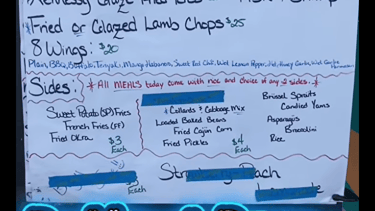 Fried or Glazed Lamb Chops $25
8 Wings: $20
Plain, BBQ, Buffalo, Teriyaki, Mango Habanero, Sweet Red Chili, Wet Lemon Pepper, Hot, Honey Garlic, Wet Garlic
Sides: * All MEALS today come with rice and choice of any 2 sides. *
Sweet Potato (SP) Fries
French Fries (FF)
Fried Okra
$3 Each
+ Collards & Cabbage Mix
Loaded Baked Beans
Fried Cajun Corn
Fried Pickles
$4 Each
Brussel Sprouts
Candied Yams
Asparagus
Broccolini
Rice
Each